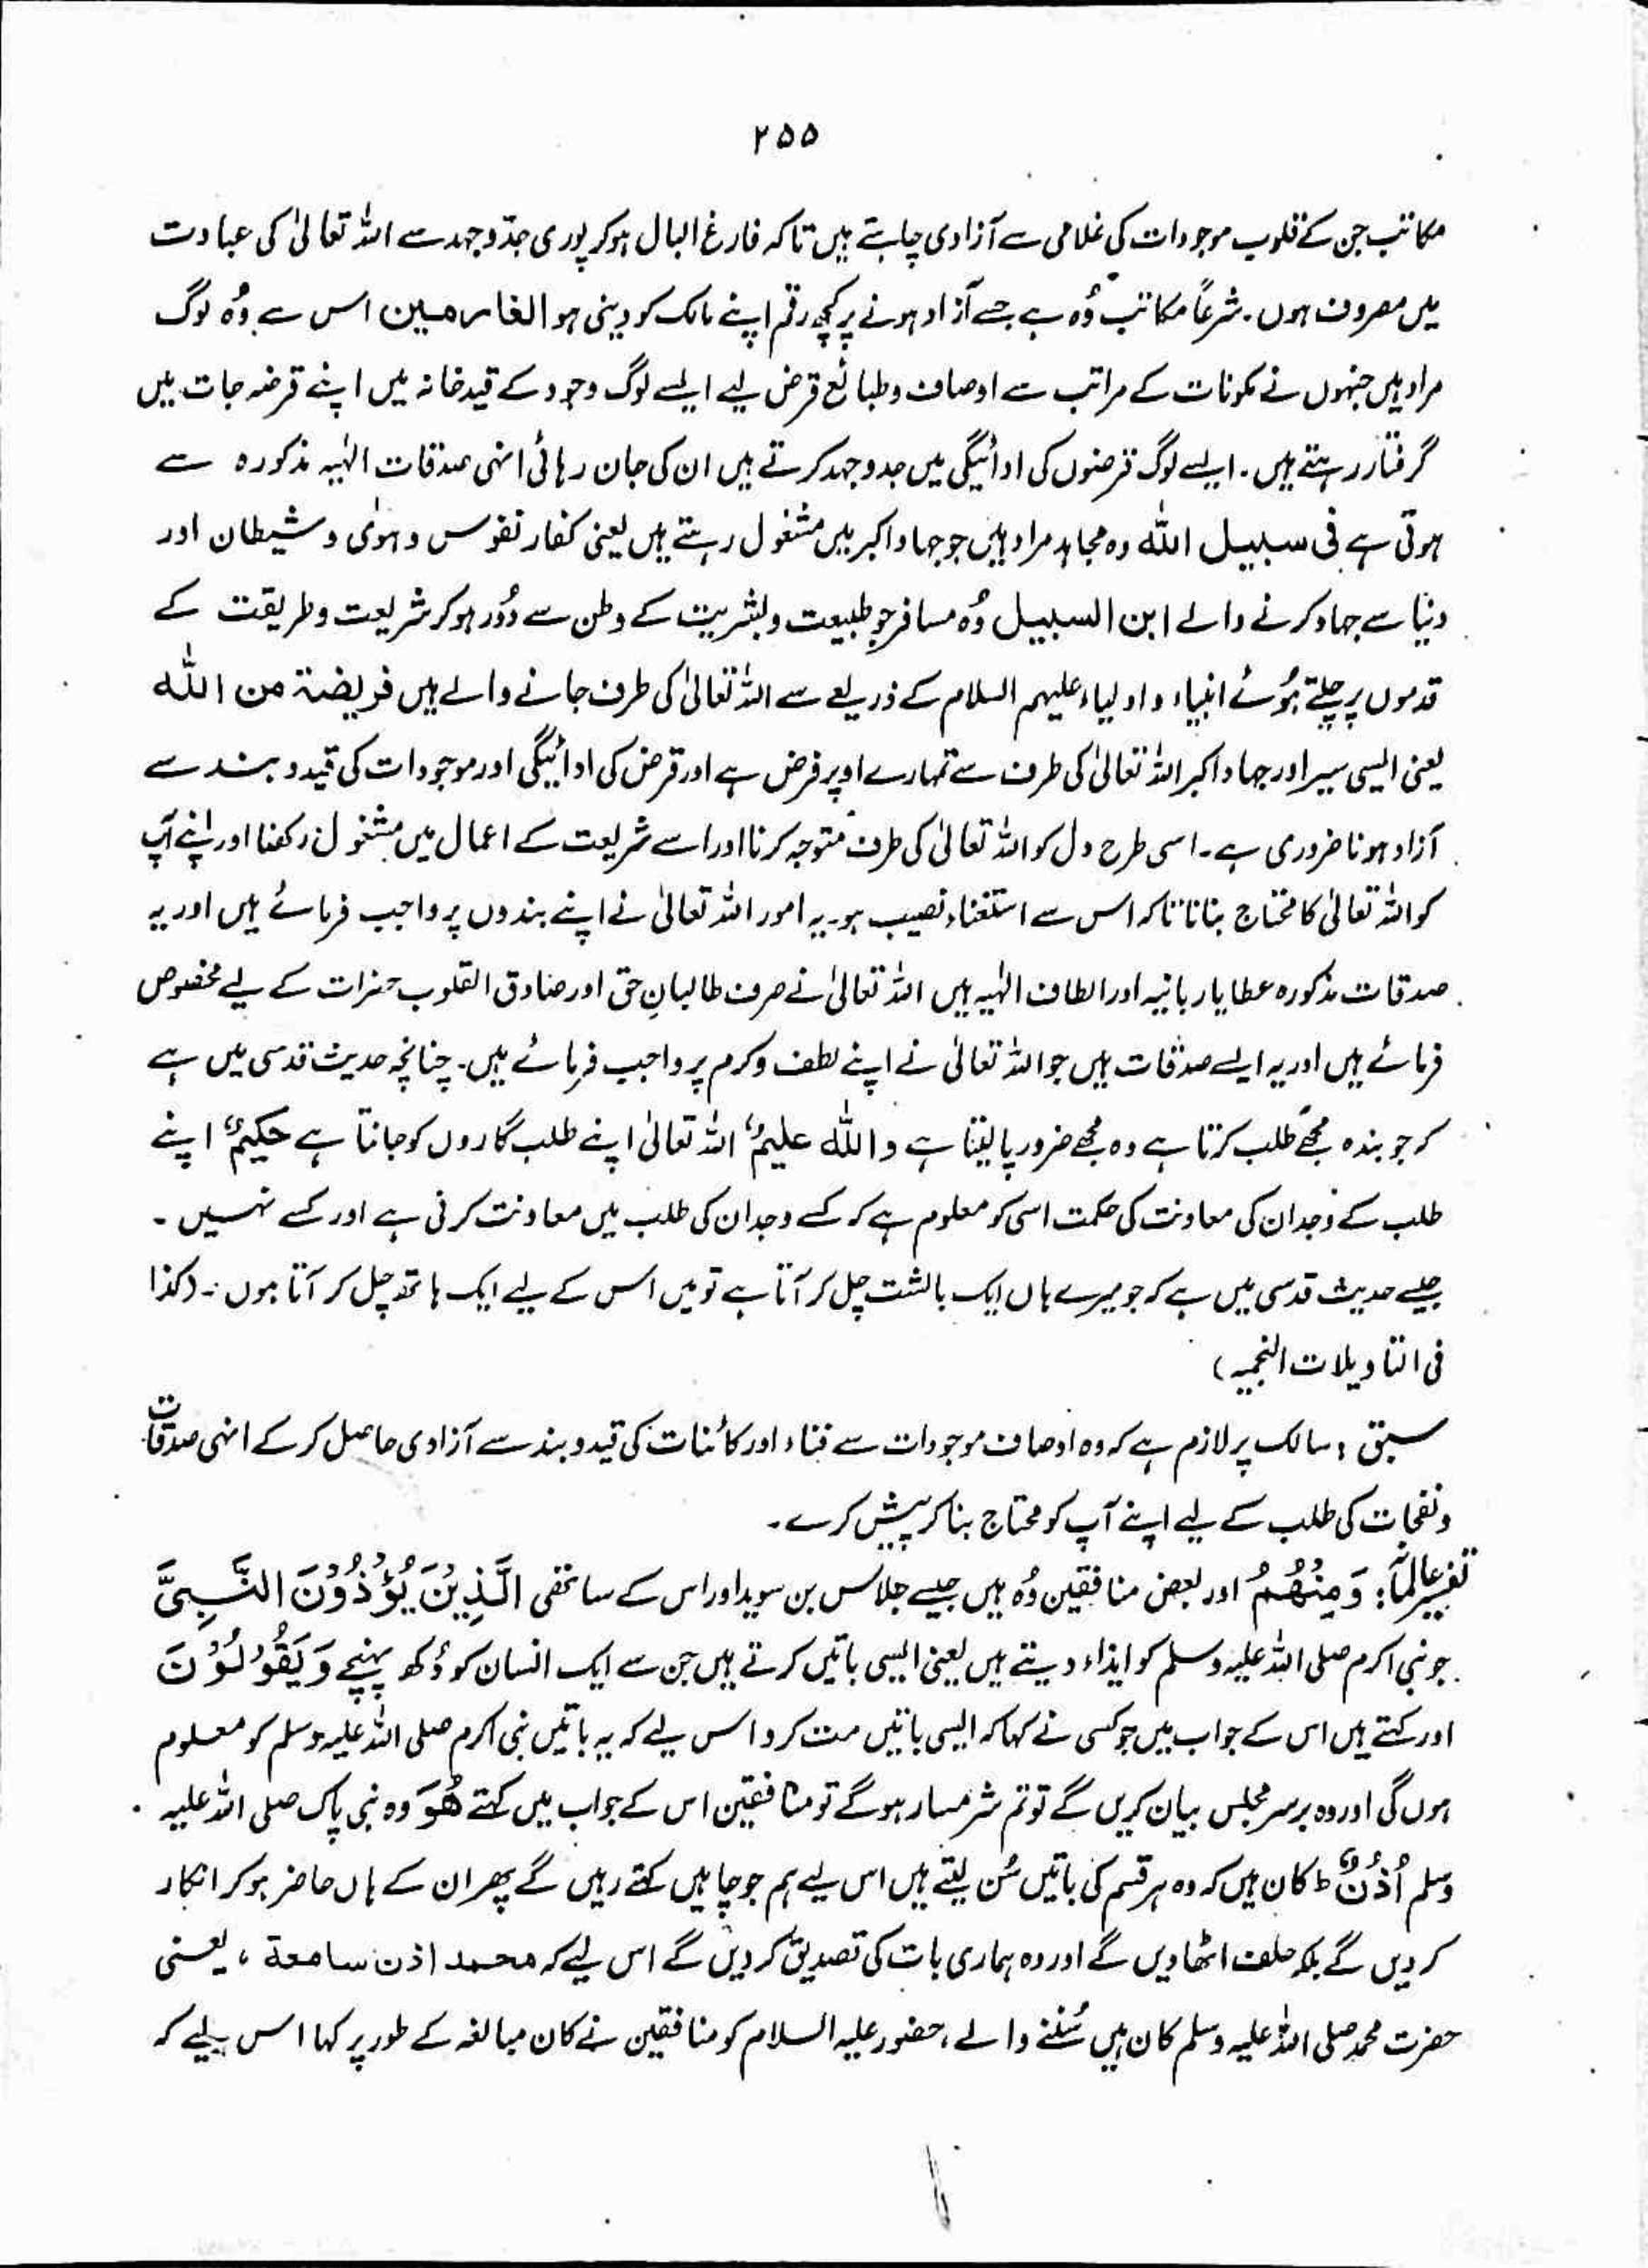 ۲۵۵
مکاتب جن کے قلوب موجودات کی غلامی سے آزادی چاہتے ہیں تاکہ فارغ البال ہوکر پوری جدّوجہد سے اللہ تعالیٰ کی عبادت
میں مصروف ہوں ۔ شرعاً مکاتب وُہ ہے جسے آزاد ہونے پر کچھ رقم اپنے مالک کو دینی ہو الغارمین اس سے وُہ لوگ
مراد ہیں جنہوں نے مکونات کے مراتب سے اوصاف و طبائع قرض لیے ایسے لوگ وجود کے قیدخانہ میں اپنے قرضہ جات میں
گرفتار رہتے ہیں ۔ ایسے لوگ قرضوں کی ادائیگی میں جدوجہد کرتے ہیں ان کی جان رہائی انہی صدقات الٰہیہ مذکورہ سے
ہوتی ہے فی سبیل اللہ وہ مجاہد مراد ہیں جو جہاد اکبر میں مشغول رہتے ہیں یعنی کفار نفوس و ہوٰی و شیطان اور
دنیا سے جہاد کرنے والے ابن السبیل وُہ مسافر جو طبیعت و بشریت کے وطن سے دُور ہوکر شریعت و طریقت کے
قدموں پر چلتے ہُوئے انبیاء و اولیاء علیہم السلام کے ذریعے سے اللہ تعالیٰ کی طرف جانے والے ہیں فریضۃ من اللہ
یعنی ایسی سیر اور جہاد اکبر اللہ تعالیٰ کی طرف سے تمہارے اوپر فرض ہے اور قرض کی ادائیگی اور موجودات کی قید و بند سے
آزاد ہونا ضروری ہے ۔ اسی طرح دل کو اللہ تعالیٰ کی طرف متوجہ کرنا اور اسے شریعت کے اعمال میں مشغول رکھنا اور اپنے آپ
کو اللہ تعالیٰ کا محتاج بنانا تاکہ اس سے استغناء نصیب ہو۔ یہ امور اللہ تعالیٰ نے اپنے بندوں پر واجب فرمائے ہیں اور یہ
صدقات مذکورہ عطایا ربانیہ اور الطاف الٰہیہ ہیں اللہ تعالیٰ نے صرف طالبانِ حق اور صادق القلوب حضرات کے لیے مخصوص
فرمائے ہیں اور یہ ایسے صدقات ہیں جو اللہ تعالیٰ نے اپنے لطف و کرم پر واجب فرمائے ہیں۔ چنانچہ حدیث قدسی میں ہے
کہ جو بندہ مجھے طلب کرتا ہے وہ مجھے ضرور پا لیتا ہے واللہ علیمٌ اللہ تعالیٰ اپنے طلب گاروں کو جانتا ہے حکیمٌ اپنے
طلب کے وجدان کی معاونت کی حکمت اسی کو معلوم ہے کہ کسے وجدان کی طلب میں معاونت کرنی ہے اور کسے نہیں ۔
جیسے حدیث قدسی میں ہے کہ جو میرے ہاں ایک بالشت چل کر آتا ہے تو میں اس کے لیے ایک ہاتھ چل کر آتا ہوں ۔ (کذا
فی التاویلات النجمیہ)
سبق : سالک پر لازم ہے کہ وہ اوصاف موجودات سے فناء اور کائنات کی قید و بند سے آزادی حاصل کر کے انہی صدقات
و نفحات کی طلب کے لیے اپنے آپ کو محتاج بنا کر پیش کرے ۔
تفسیر عالمانہ : وَمِنْهُمُ اور بعض منافقین وُہ ہیں جیسے جلاس بن سوید اور اس کے ساتھی الَّذِیْنَ یُؤْذُوْنَ النَّبِیَّ
جو نبی اکرم صلی اللہ علیہ وسلم کو ایذاء دیتے ہیں یعنی ایسی باتیں کرتے ہیں جن سے ایک انسان کو دُکھ پہنچے وَیَقُوْلُوْنَ
اور کہتے ہیں اس کے جواب میں جو کسی نے کہا کہ ایسی باتیں مت کرو اس لیے کہ یہ باتیں نبی اکرم صلی اللہ علیہ وسلم کو معلوم
ہوں گی اور وہ برسر مجلس بیان کریں گے تو تم شرمسار ہوگے تو منافقین اس کے جواب میں کہتے هُوَ وہ نبی پاک صلی اللہ علیہ
وسلم اُذُنٌ ط کان ہیں کہ وہ ہر قسم کی باتیں سُن لیتے ہیں اس لیے ہم جو چاہیں کہتے رہیں گے پھر ان کے ہاں حاضر ہوکر انکار
کر دیں گے بلکہ حلف اٹھا دیں گے اور وہ ہماری بات کی تصدیق کر دیں گے اس لیے کہ محمد اذن سامعة ، یعنی
حضرت محمد صلی اللہ علیہ وسلم کان ہیں سُننے والے ، حضور علیہ السلام کو منافقین نے کان مبالغہ کے طور پر کہا اس لیے کہ